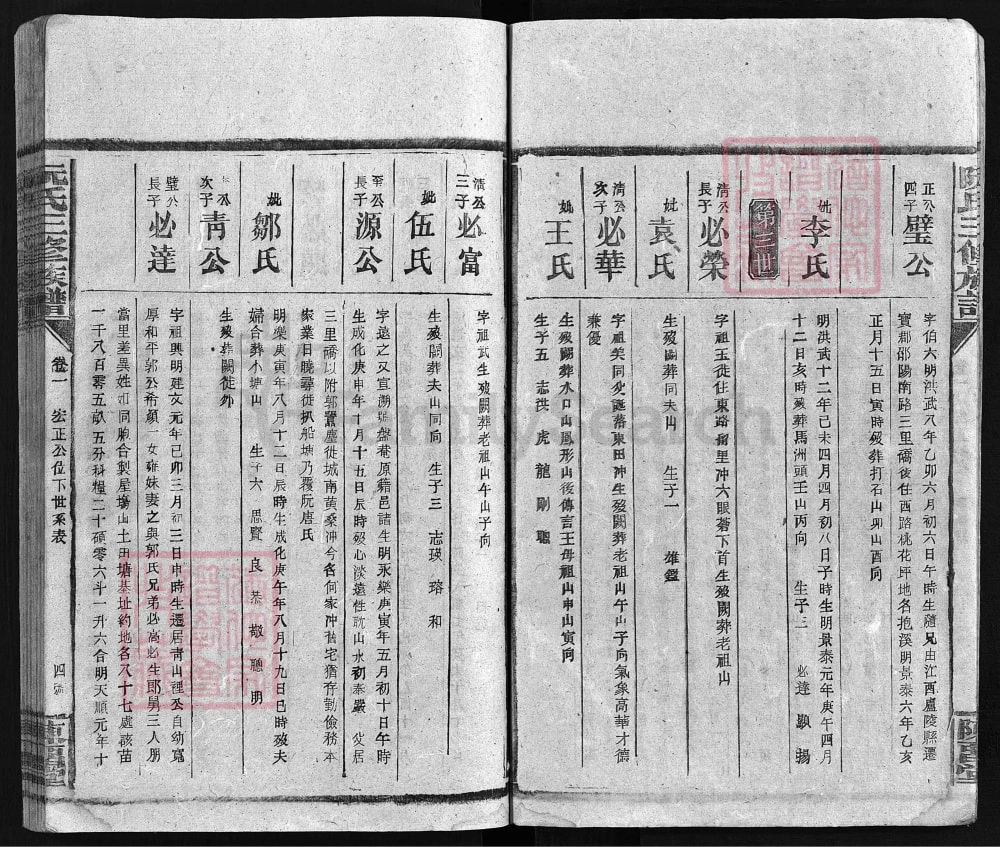 正公四子 璧公
字伯六明洪武八年乙卯六月初六日午時生隨兄由江西盧陵縣遷
寶郡邵陽南路三里礄後住西路桃花坪地名抱溪明景泰六年乙亥
正月十五日寅時歿葬打石山卯山酉向
妣 李氏
明洪武十二年己未四月四月初八日子時生明景泰元年庚午四月
十二日亥時歿葬馬洲頭壬山丙向 生子三 必達 顯 揚
第三世
清公長子 必榮
字祖玉徙住東路甯里冲六眼莟下首生歿闕葬老祖山
妣 袁氏
生歿闕葬同夫山 生子一 雄鑑
清公次子 必華
字祖美同父遷落東田冲生歿闕葬老祖山午山子向氣象高華才德
兼優
妣 王氏
生歿闕葬水口山鳳形山後傳言王母祖山申山寅向
生子五 志洪 虎 龍 剛 聰
清公三子 必富
字祖武生歿闕葬老祖山午山子向
妣 伍氏
生歿闕葬夫山同向 生子三 志瑛 瑢 和
長子 源公
字遠之又宣湖號盤菴原籍邑諸生明永樂庚寅年五月初十日午時
生成化庚申年十月十五日辰時歿心淡遠性耽山水初泰嚴父居
三里礄以附郭囂塵徙城南黄桑沖今各何家冲舊宅猶存勤儉務本
家業日曉尋徙扒船塘乃覆阮唐氏
妣 鄒氏
明樂庚寅年八月十二日辰時生成化庚午年八月十九日巳時歿夫
婦合葬小塘山 生子六 思賢 良 恭 敬 聽 明
次子 青公
生歿葬闕徙外
璧公長子 必達
字祖興明建文元年己卯三月初三日申時生遷居青山裡公自幼寬
厚和平郭公希顏一女雍妹妻之與郭氏兄弟必高必生郎舅三人朋
當里差異姓如同胞合製屋塲山土田塘基址約地各八十七處該苗
一千八百零五畝五分科糧二十碩零六斗一升六合明天順元年十
阮氏三修族譜
卷一 宏正公位下世系表
四